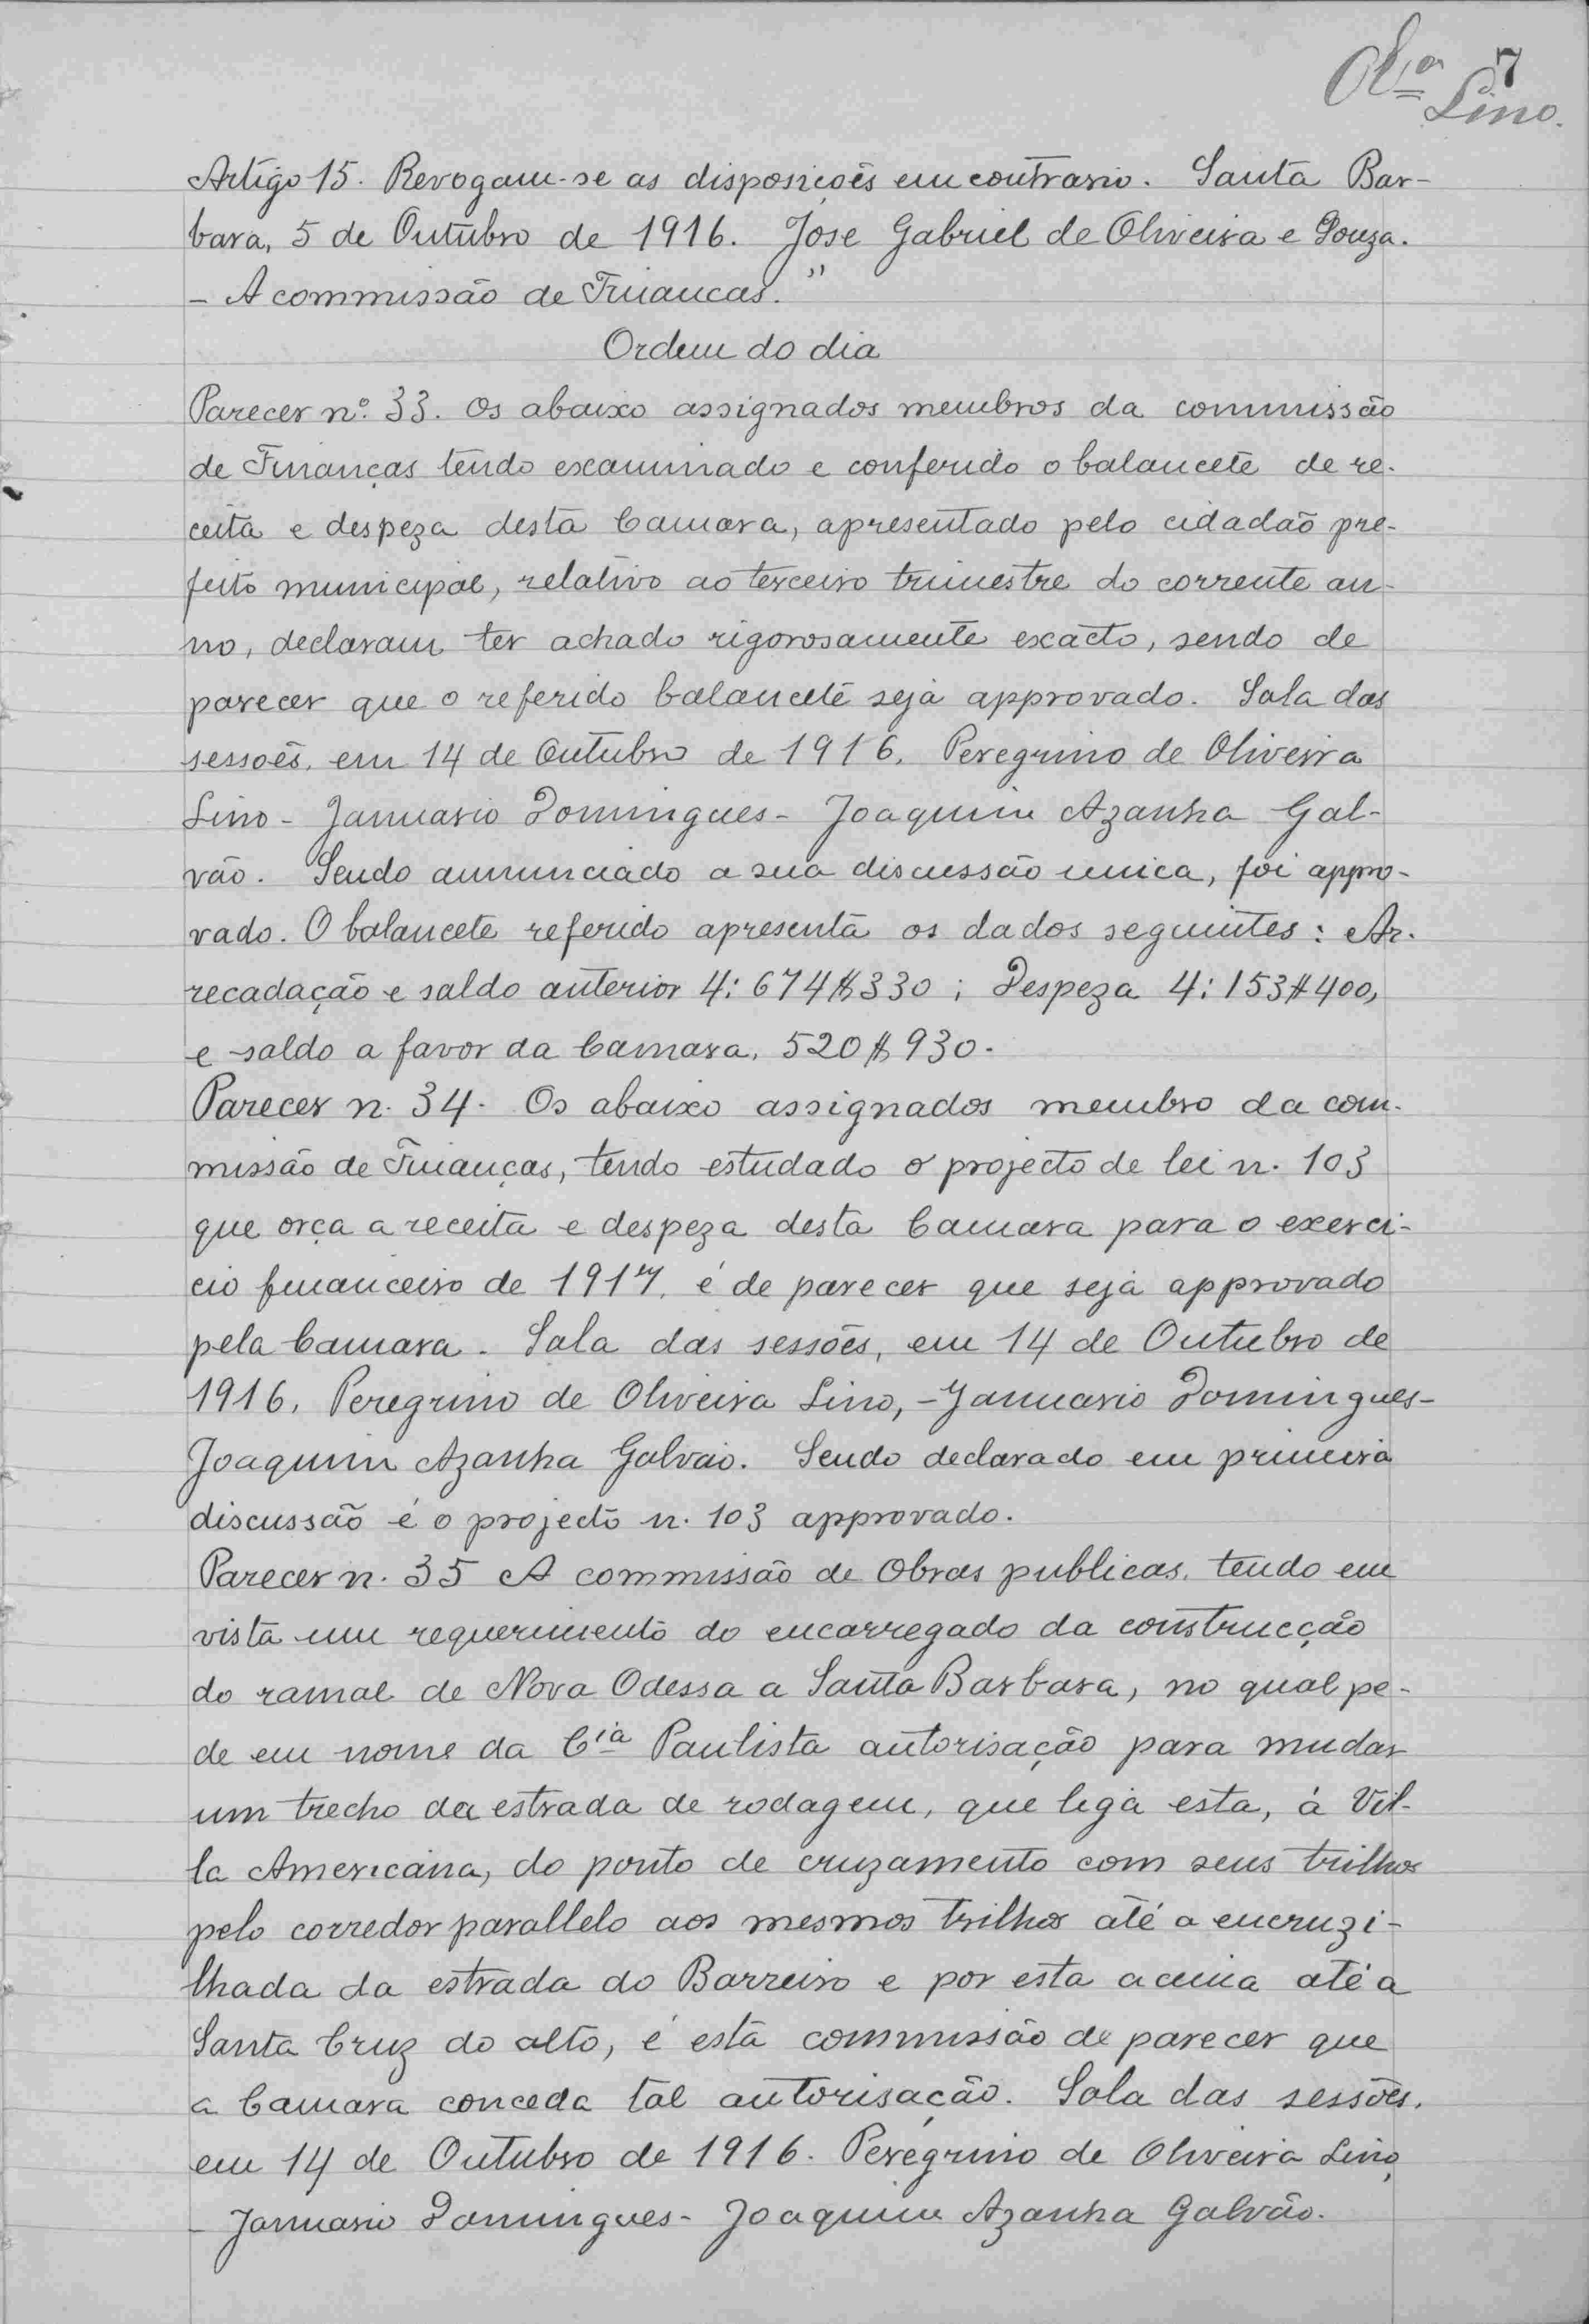 7
Olra
Lino.
Artigo 15. Revogam-se as disposiçoês em contrario. Santa Bar-
bara, 5 de Outubro de 1916. José Gabriel de Oliveira e Souza.
- A commissão de Finanças."
Ordem do dia
Parecer nº. 33. Os abaixo assignados membros da commissão
de Finanças tendo examinado e conferido o balancete de re-
ceita e despeza desta Camara, apresentado pelo cidadaõ pre-
feito municipal, relativo ao terceiro trimestre do corrente an-
no, declaram ter achado rigorosamente exacto, sendo de
parecer que o referido balancete seja approvado. Sala das
sessoẽs, em 14 de Outubro de 1916. Peregrino de Oliveira
Lino - Januario Domingues - Joaquim Azanha Gal-
vão. Sendo annunciado a sua discussão unica, foi appro-
vado. O balancete referido apresenta os dados seguintes: Ar-
recadação e saldo anterior 4:674$330; Despeza 4:153$400,
e saldo a favor da Camara, 520$930.
Parecer n. 34. Os abaixo assignados membro da com-
missão de Finanças, tendo estudado o projecto de lei n. 103
que orça a receita e despeza desta Camara para o exerci-
cio financeiro de 1917, é de parecer que seja approvado
pela Camara. Sala das sessões, em 14 de Outubro de
1916, Peregrino de Oliveira Lino, - Januario Domingues -
Joaquim Azanha Galvão. Sendo declarado em primeira
discussão é o projecto n. 103 approvado.
Parecer n. 35 A commissão de Obras publicas, tendo em
vista um requerimento do encarregado da construcção
do ramal de Nova Odessa a Santa Barbara, no qual pe-
de em nome da Cia Paulista autorisação para mudar
um trecho da estrada de rodagem, que liga esta, á Vil-
la Americana, do ponto de cruzamento com seus trilhos
pelo corredor parallelo aos mesmos trilhos até a encruzi-
lhada da estrada do Barreiro e por esta acima até a
Santa Cruz do alto, é esta commissão de parecer que
a Camara conceda tal autorisação. Sala das sessões,
em 14 de Outubro de 1916. Peregrino de Oliveira Lino,
- Januario Domingues - Joaquim Azanha Galvão.